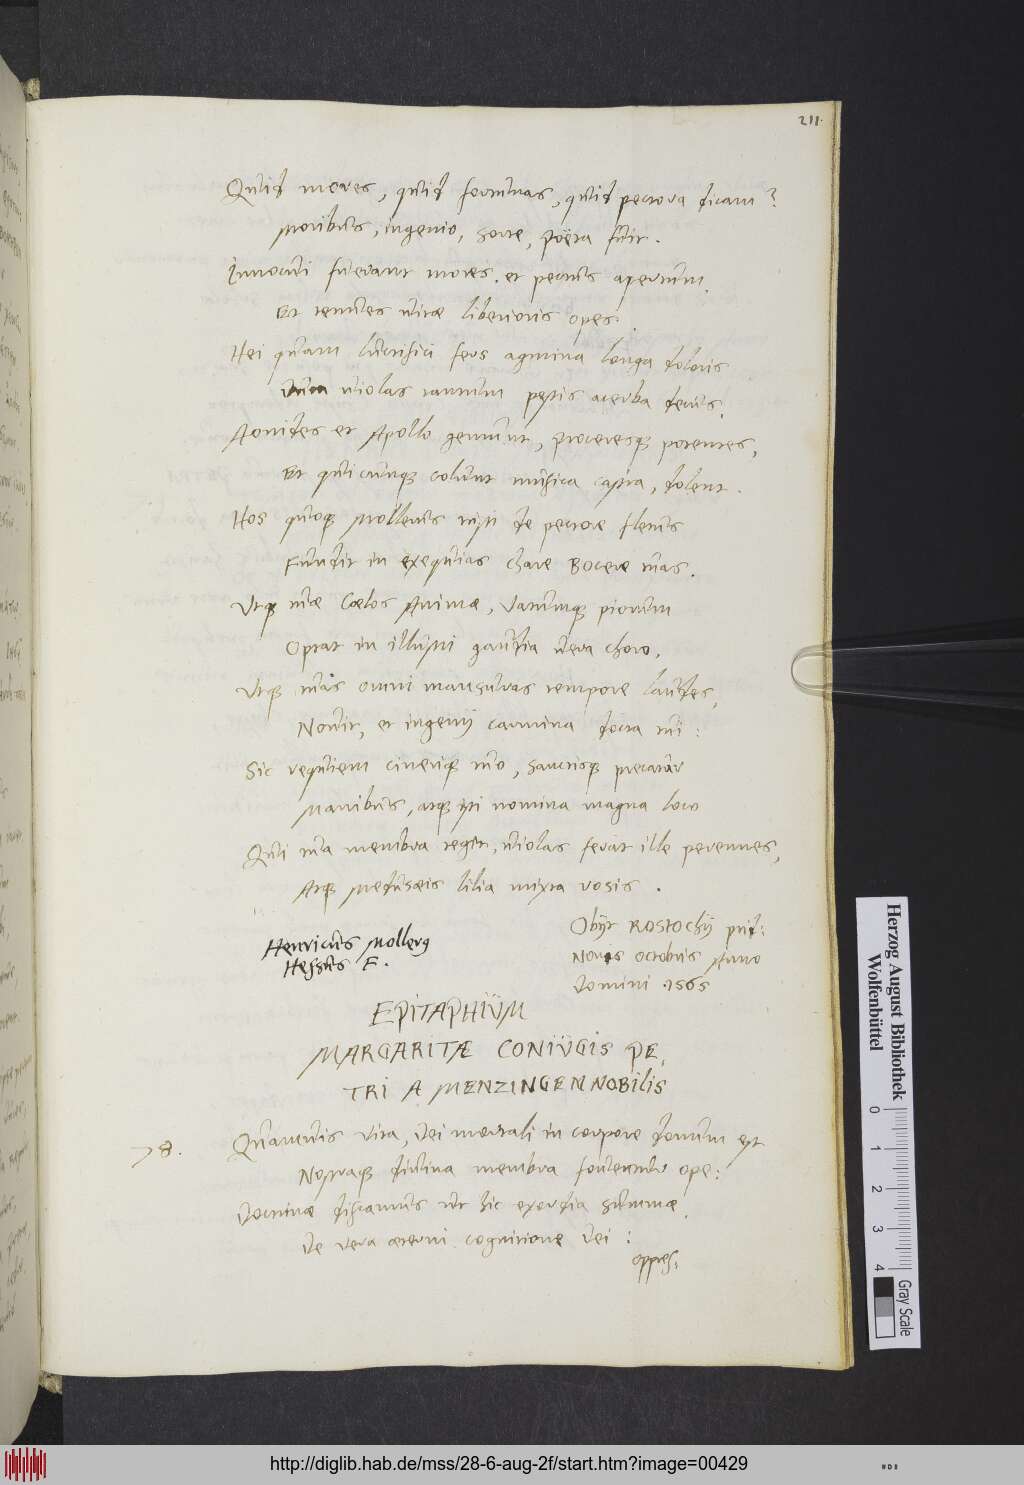 211.
Quid mores, quid fortunas, quid pectora dicam?
Moribus, ingenio, sorte, Poëta fuit.
Innocui fuerant mores, et pectus apertum,
Et tenues vitae liberioris opes.
Hei quam luctifici fers agmina longa doloris
Dum violas tantum pestis acerba decus.
Aonides et Apollo gemunt, proceresq; potentes,
Et quicunq; colunt musica castra, dolent.
Hos quoq; Mollerus tristi de pectore fletus
Fundit in exequias chare Bocere tuas.
Utq; tuae coelos Animae, Vatumq; piorum
Optat in illustri gaudia vera choro,
Utq; tuas omni mansuras tempore laudes,
Novit, et ingenij carmina docta tui:
Sic requiem cineriq; tuo, sanctisq; precatur
Manibus, atq; isti nomina magna loco
Qui tua membra tegit, violas ferat ille perennes,
Atq; Medusaeis lilia mixta rosis.
Henricus Mollerg
Hessus F.
Obijt Rostochij prid:
Nonis Octobris Anno
Domini 1565
EPITAPHIUM
MARGARITAE CONIUGIS PE,
TRI A MENZINGEN NOBILIS
78.
Quamvis vita, Dei mortali in corpore donum est
Nostraq; divina membra foventur ope:
Doctrinae discamus ut hic exordia summae,
De vera aeterni cognitione Dei:
oppres:
Herzog August Bibliothek
Wolfenbüttel
0 1 2 3 4
Gray Scale
http://diglib.hab.de/mss/28-6-aug-2f/start.htm?image=00429